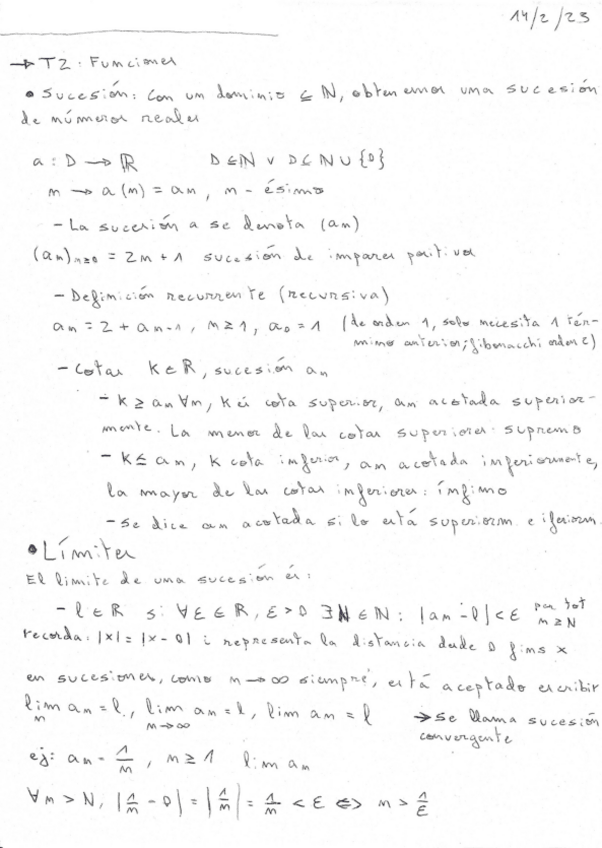 14/2/23
→ T2: Funciones
• Sucesión: Con un dominio ⊆ ℕ, obtenemos una sucesión
de números reales
a : D → ℝ D ⊆ ℕ ∨ D ⊆ ℕ ∪ {0}
n → a(n) = an, n-ésimo
- La sucesión a se denota (an)
(an)n≥0 = 2n + 1 sucesión de impares positivos
- Definición recurrente (recursiva)
an = 2 + an-1, n ≥ 1, a0 = 1 (de orden 1, solo necesita 1 tér-
mino anterior; fibonacchi orden 2)
- Cotas K ∈ ℝ, sucesión an
- K ≥ an ∀n, K és cota superior, an acotada superior-
mente. La menor de las cotas superiores: supremo
- K ≤ an, K cota inferior, an acotada inferiormente,
la mayor de las cotas inferiores: ínfimo
- Se dice an acotada si lo está superiorm. e iferiorm.
• Límites
El limite de una sucesión és:
- l ∈ ℝ si ∀ε ∈ ℝ, ε > 0 ∃N ∈ ℕ: |an - l| < ε per tot n ≥ N
recorda: |x| = |x - 0| i representa la distancia desde 0 fins x
en sucesiones, como n → ∞ siempre, está aceptado escribir
lim n an = l, lim n→∞ an = l, lim an = l → Se llama sucesión
convergente
ej: an = 1/n, n ≥ 1 lim an
∀n > N, |1/n - 0| = |1/n| = 1/n < ε ⇔ n > 1/ε